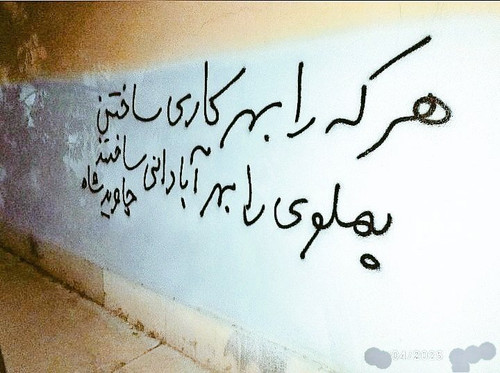 هر که را بهر کاری ساختن
پهلوی را بهر آبادانی ساختند
جاوید شاه
04/2025